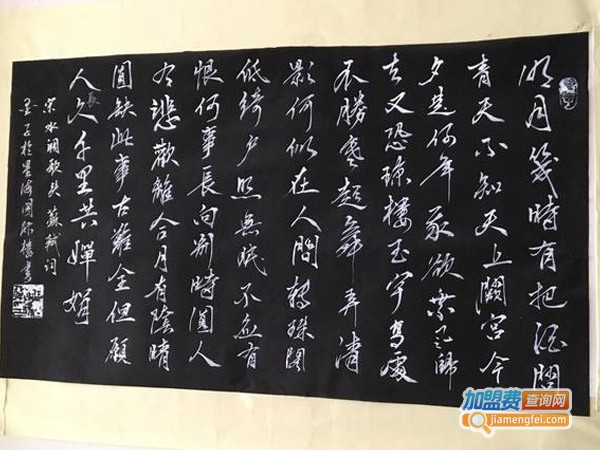 明月幾時有把酒問
青天不知天上闕宮今
夕是何年我欲乘风歸
去又恐瓊樓玉宇高處
不勝寒起舞弄清
影何似在人間轉珠閣
低綺户照無眠不應有
恨何事長向别時圓人
有悲歡離合月有陰晴
圓缺此事古難全但願
人長久千里共嬋娟
宋水調歌头蘇軾詞
於墨海園書
加盟费查询网
jiamengfei.com